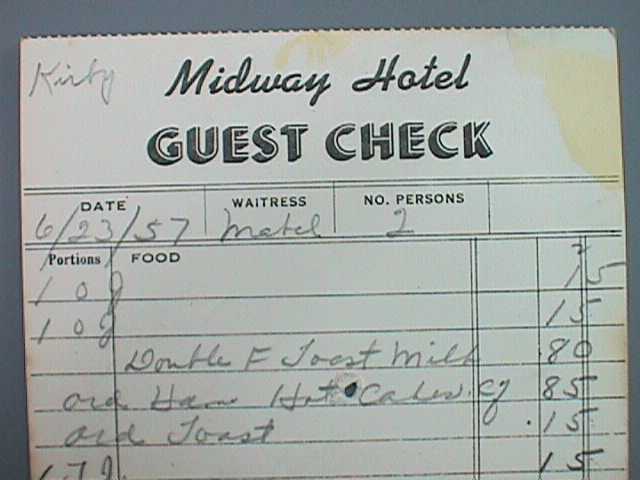 Kirby
Midway Hotel
GUEST CHECK
DATE WAITRESS NO. PERSONS
6/23/57 Mabel 2
Portions FOOD
1 OJ 15
1 OJ 15
Double E Toast Milk 80
Ord Ham Hot Cakes 85
Ord Toast .15
1 15